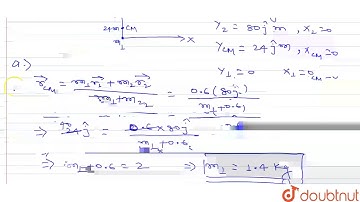 24m CM
m₁ X
y₂ = 80ĵ m, x₂ = 0
y_CM = 24ĵ m, x_CM = 0
y₁ = 0 x₁ = 0
a:)
r⃗_CM = m₁r⃗₁ + m₂r⃗₂ / m₁ + m₂ = 0.6(80ĵ) / m₁ + 0.6
⇒ 24ĵ = 0.6 × 80ĵ / m₁ + 0.6
⇒ m₁ + 0.6 = 2 ⇒ m₁ = 1.4 kg
doubtnut